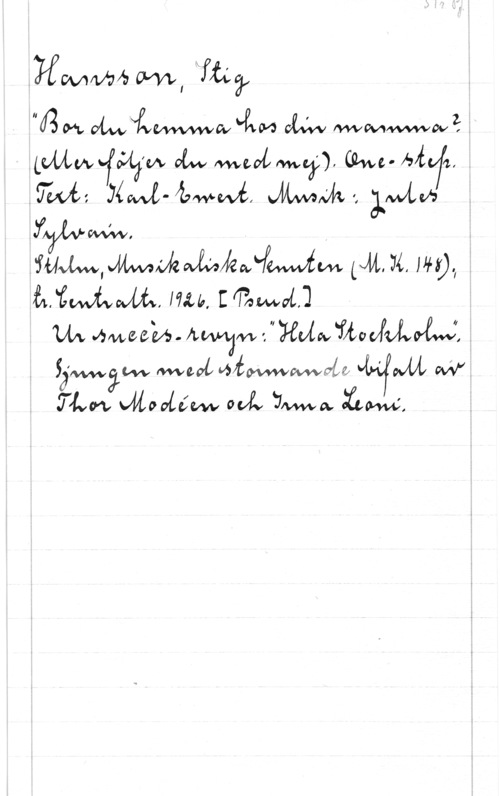 Hansson, Stig
"Bor du hemma hos din mamma?
(eller följer du med mej). One-step.
Text: Karl-Ewert. Musik: Jules
Sylvain.
Sthlm, Musikaliska knuten (M.K. 148),
tr. Centraltr. 1926. [Pseud.]
Ur succès-revyn: "Hela Stockholm".
Sjungen med stormande bifall av
Thor Modéen och Irma Leoni.